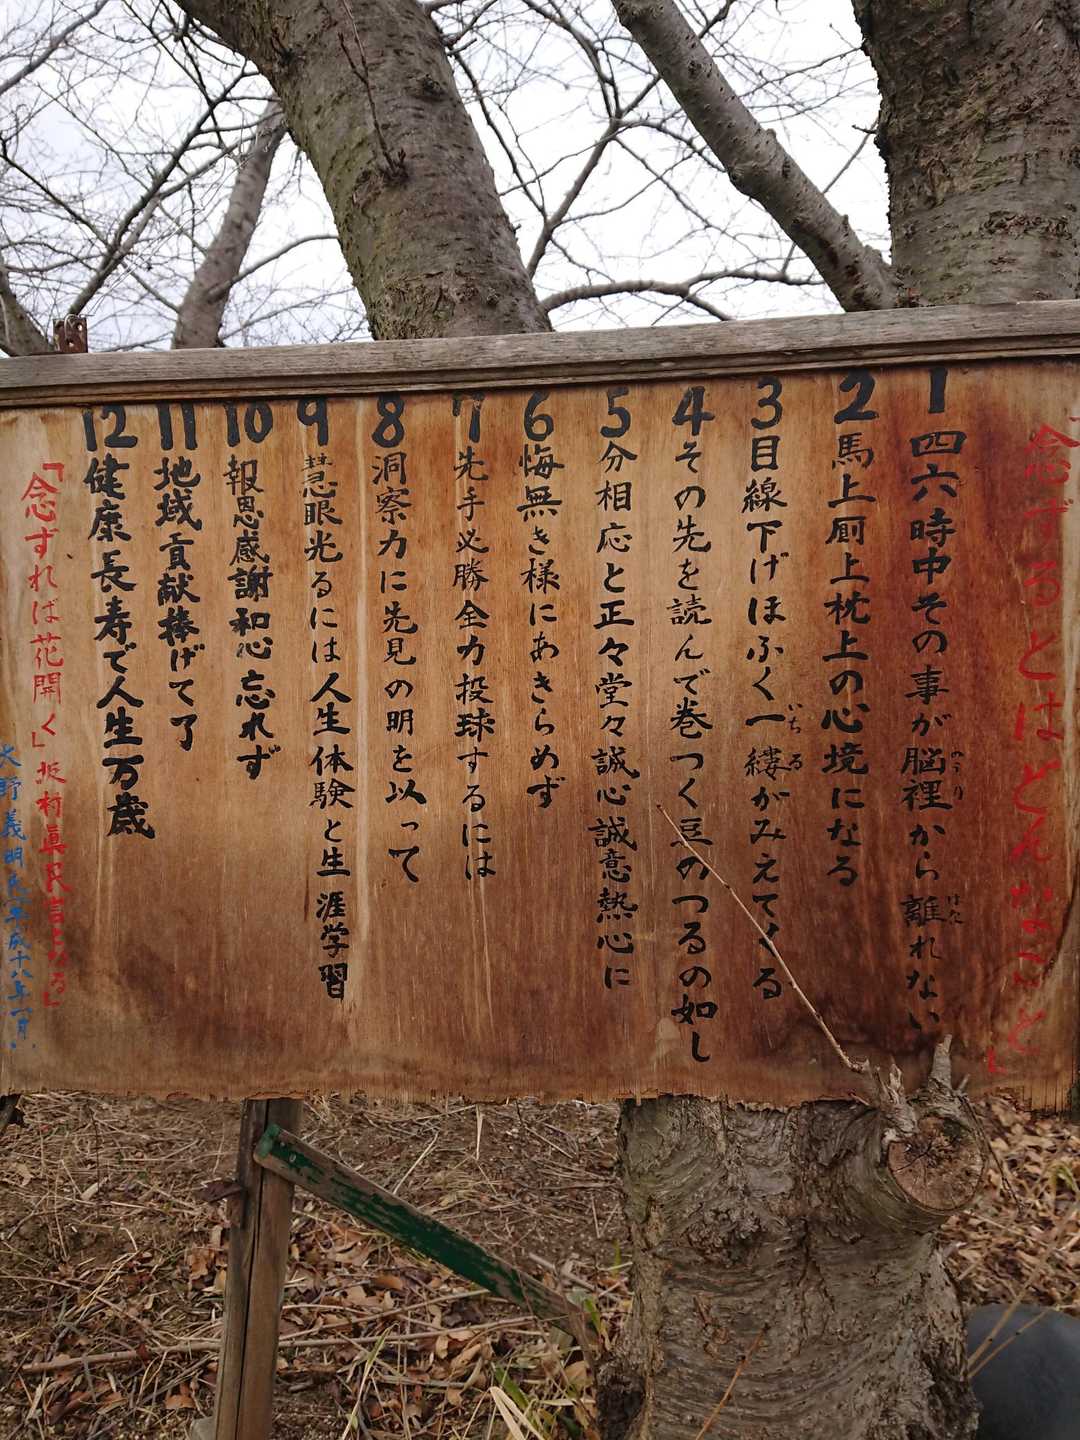 「念ずるとはどんなこと」
1 四六時中その事が脳裡から離れない
のうり
はな
2 馬上厠上枕上の心境になる
3 目線下げほふく一縷がみえてくる
いちる
4 その先を読んで巻つく豆のつるの如し
5 分相応と正々堂々誠心誠意熱心に
6 悔無き様にあきらめず
7 先手必勝全力投球するには
8 洞察力に先見の明を以って
9 慧眼光るには人生体験と生涯学習
10 報恩感謝和心忘れず
11 地域貢献捧げて了
12 健康長寿で人生万歳
「念ずれば花開く」坂村眞民言となる」
大野義明氏(平成十八年一月)